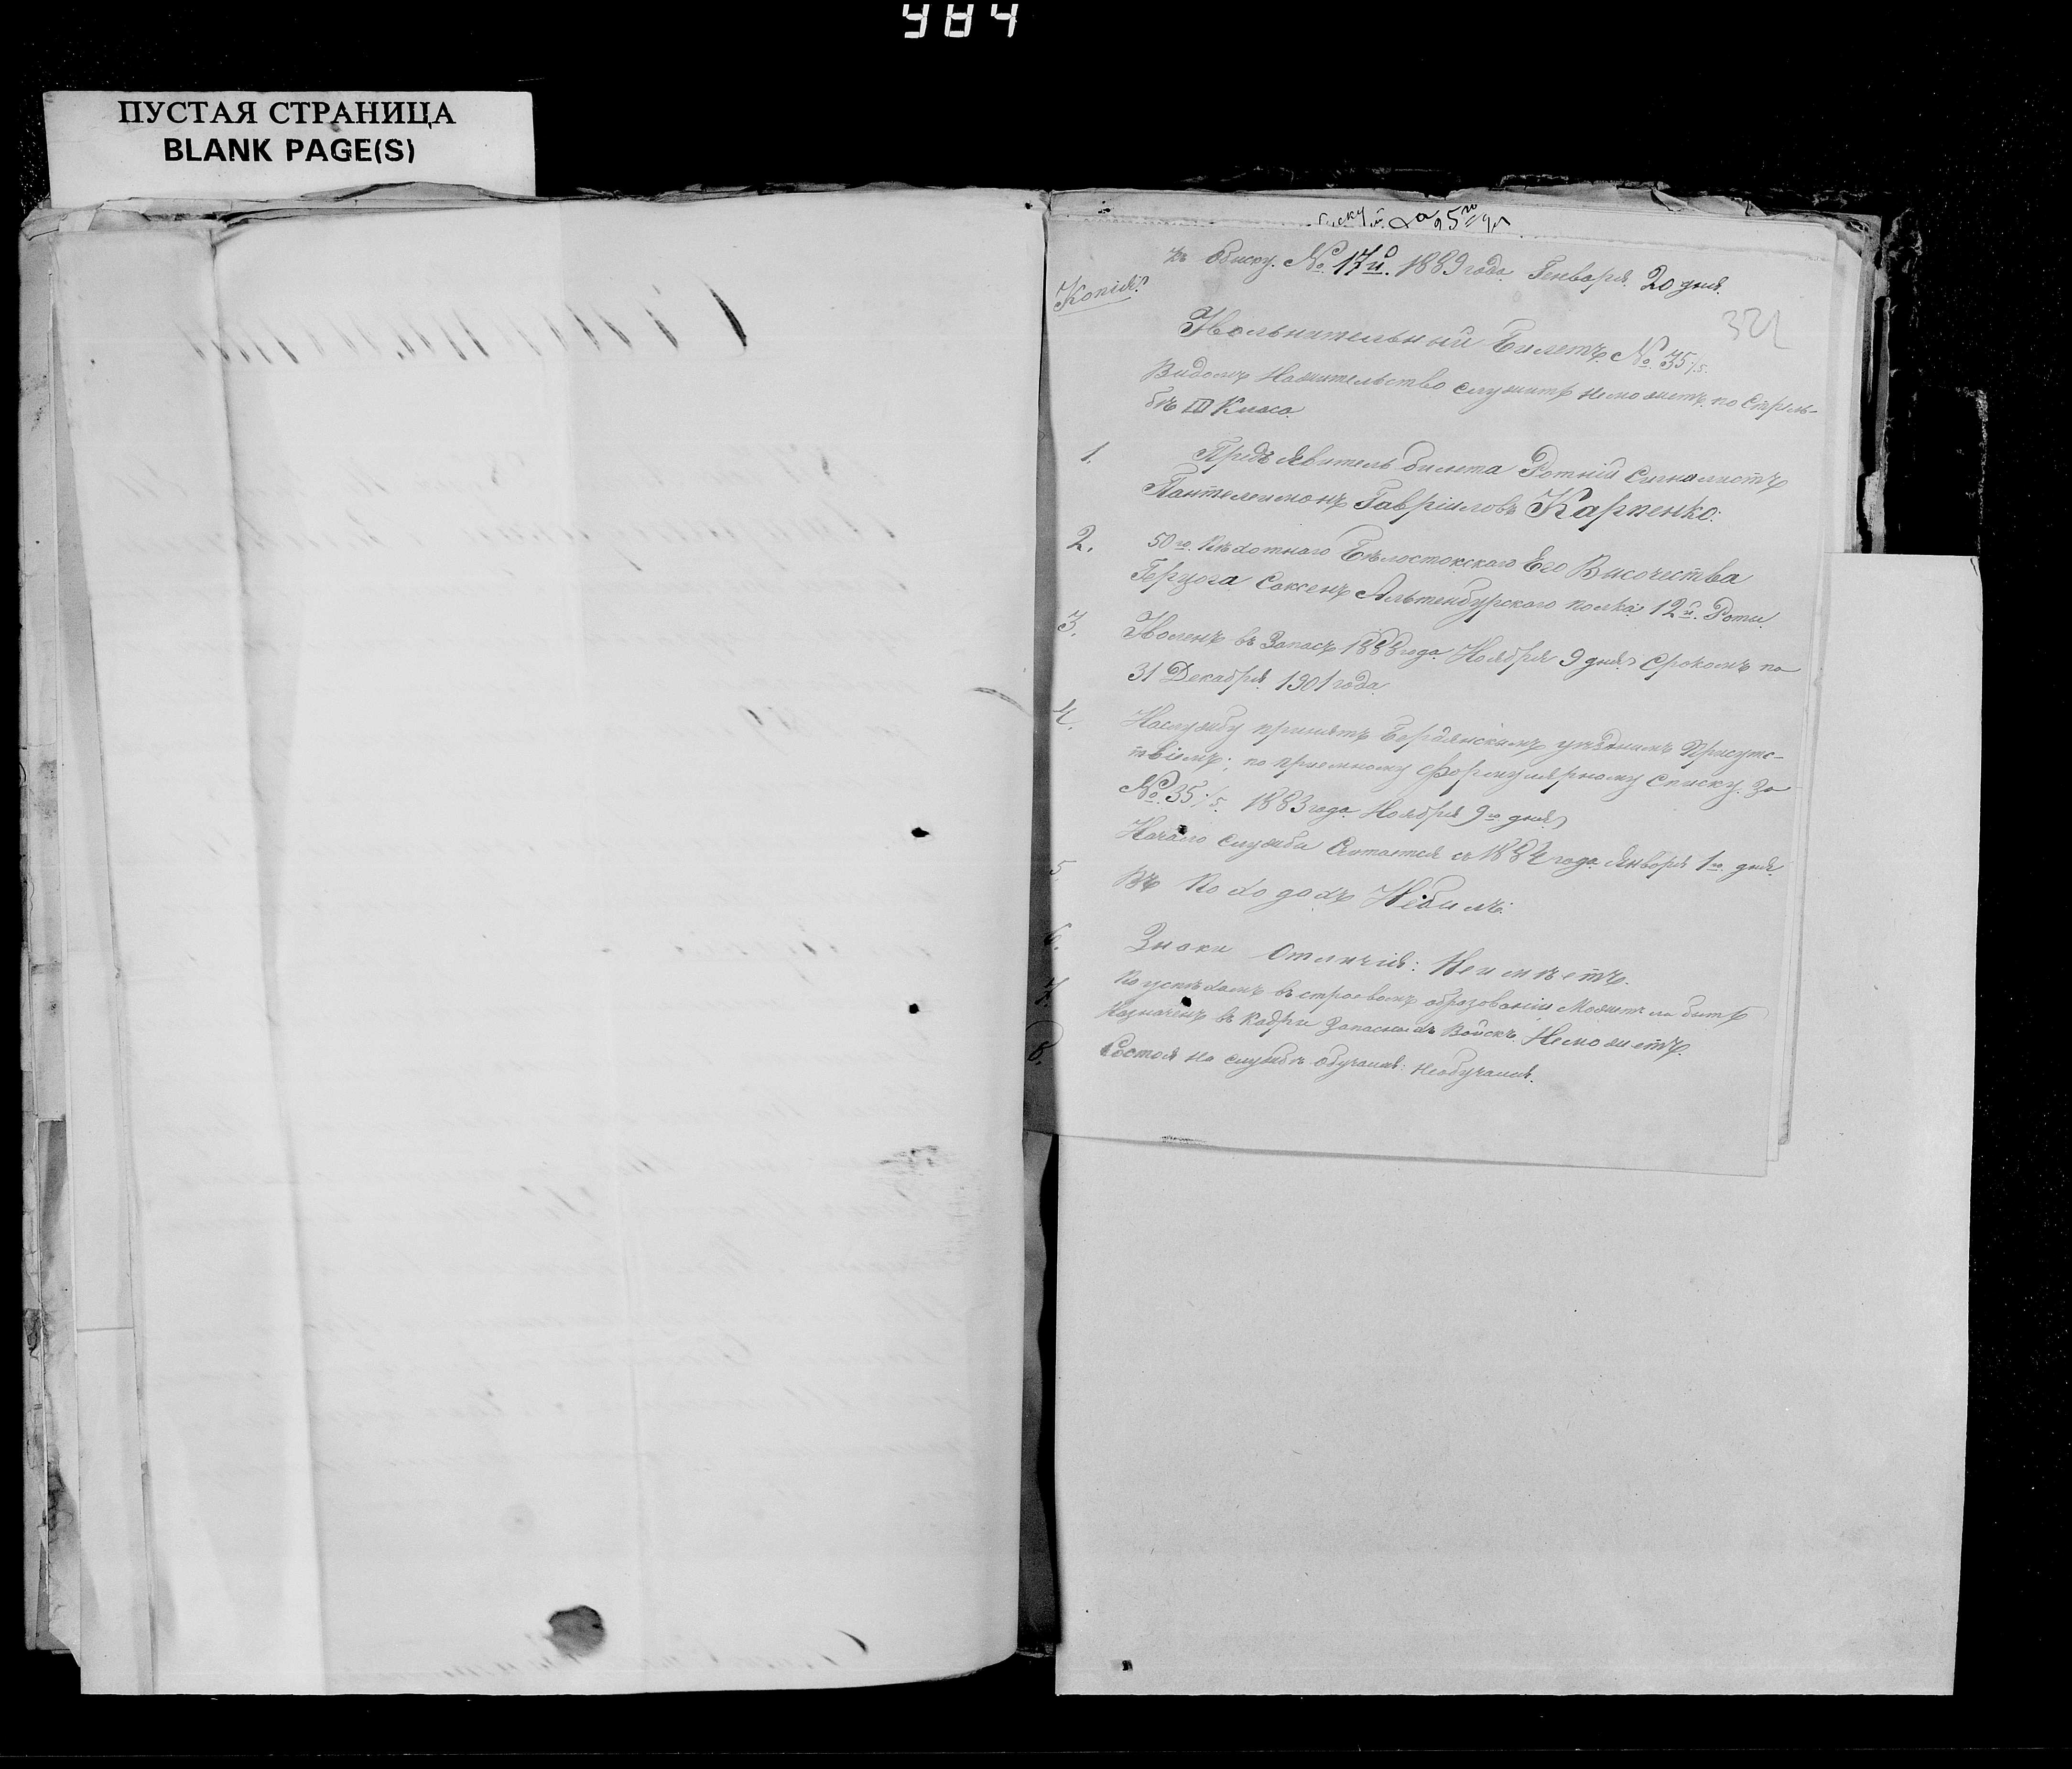 984
ПУСТАЯ СТРАНИЦА
BLANK PAGE(S)
къ Обыску. №. 17й. 1889 года. Генваря. 20 дня.
Копія.
321
Увольнительный Билетъ № 35/5.
Видомъ Нажительство служить неможетъ. по Стрѣль-
бѣ III Класа
1. Предъявитель билета Ротній Сигналистъ
Пантелеимонъ Гавріиловъ Карпенко.
2. 50го. Пѣхотнаго Бѣлостокскаго Его Височества
Герцога Саксенъ Альтенбургскаго полка 12й. Роты.
3. Уволенъ въ Запасъ 1888 года. Ноября 9 дня. Срокомъ по
31 Декабря. 1901 года.
4. Наслужбу принятъ Бердянскимъ уѣзднимъ Присутс-
твіемъ; по приемному Формулярному Списку. За
№. 35/5. 1883 года. Ноября 9го дня
Начало службы Считается съ 1884 года. Января 1го. дня.
5. Въ Походахъ Небилъ.
6. Знаки Отличія: Неимѣетъ.
7. По успѣхамъ въ строевомъ образованіи Можетъ ли бить
Назначенъ въ Кадри Запасныхъ Войскъ. Неможетъ.
8. Состоя на службѣ обучался: Необучался.